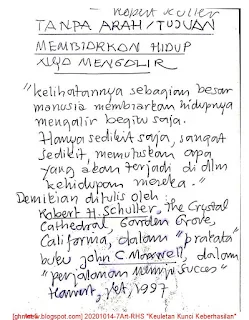 Robert Kuller
TANPA ARAH/TUJUAN
MEMBIARKAN HIDUP
NYO MENGALIR
"kelihatannya sebagian besar
manusia membiarkan hidupnya
mengalir begitu saja.
Hanya sedikit saja, sangat
sedikit, memutuskan apa
yang akan terjadi di dlm
kehidupan mereka."
Demikian ditulis oleh
Robert H. Schuller, The Crystal
Cathedral, Garden Grove,
California, dalam "prakata"
buku John C. Maxwell, dalam
"perjalanan menuju succes"
1997
20201014-7Art-RHS "Keuletan Kunci Keberhasilan"